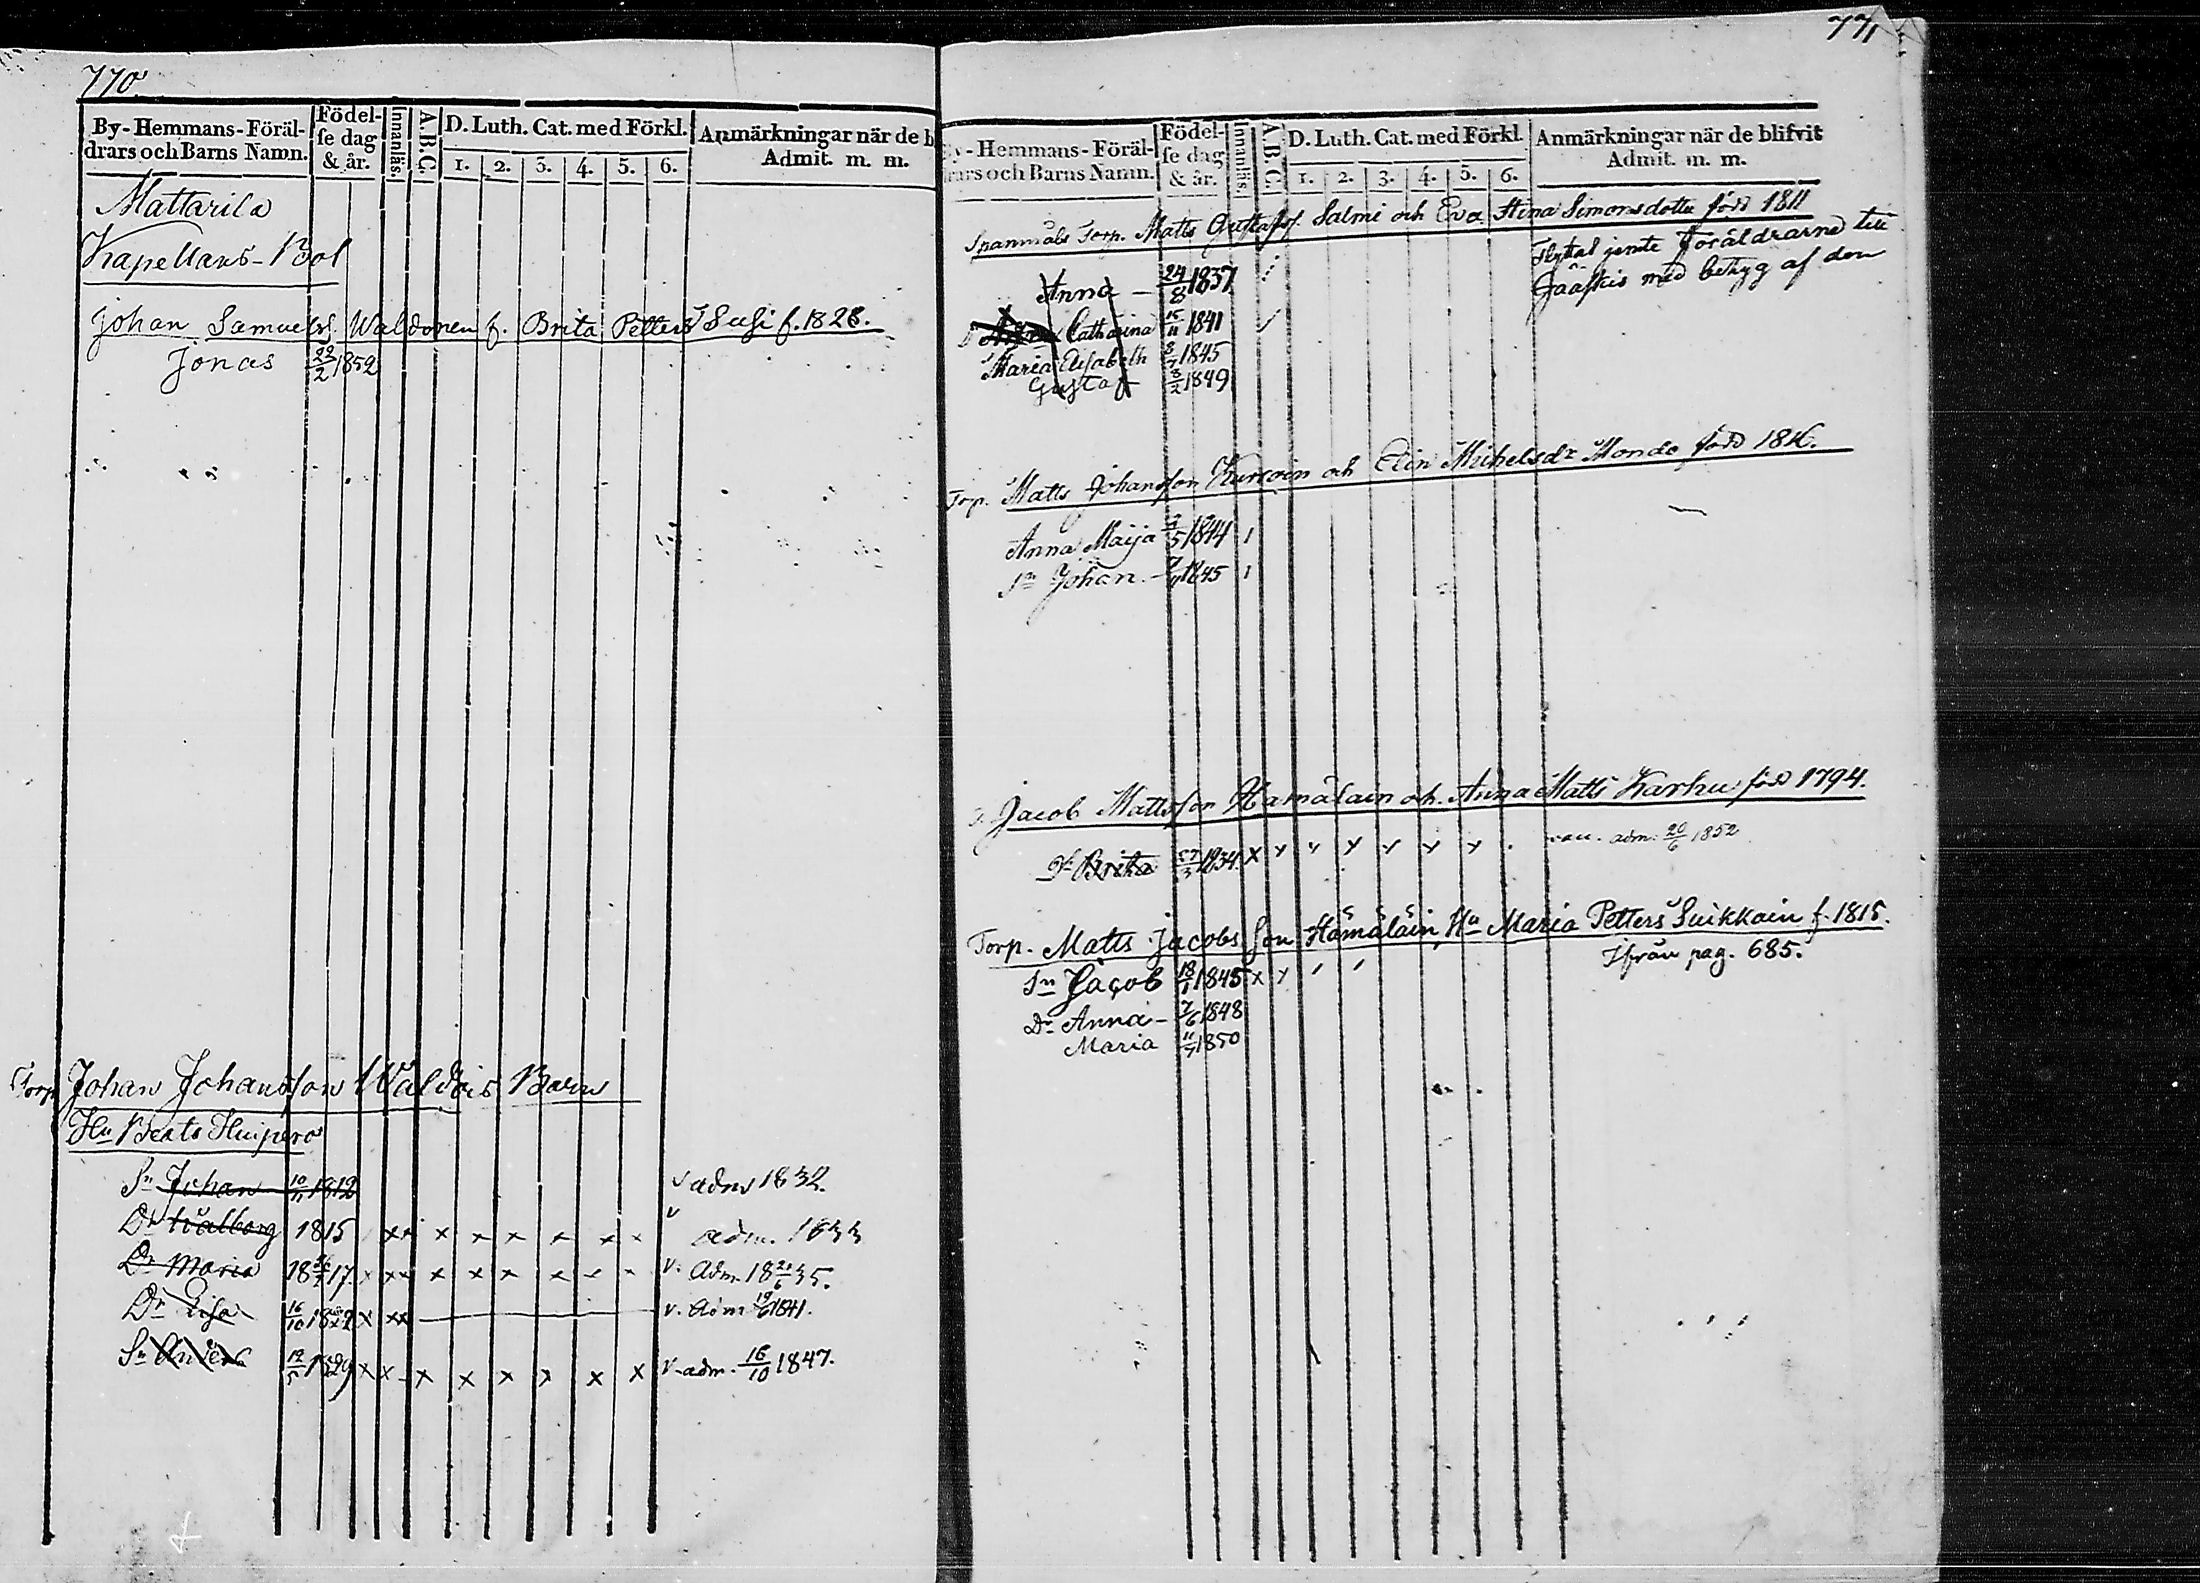 770
By-Hemmans-Föräl-
drars och Barns Namn.
Födel-
se dag
& år.
Innanläs.
A.B.C.
D. Luth. Cat. med Förkl.
1. 2. 3. 4. 5. 6.
Anmärkningar när de b
Admit. m. m.
Mattarila
Kapellans-Bol
Johan Samuels. Waldonen f. Brita Petters Susi f. 1828.
Jonas 22/2 1852
Torp. Johan Johansson Waldois Barn
Hu Beata Huipero
Sn Johan 10/11 1812 v adm 1832.
Dr Walborg 1815 x x x x x x x x v adm. 1833
Dr Maria 18 17. x x x x x x x x v. Adm. 18 21/6 35.
Dr Lisa 16/10 x x x v. Adm 19/6 1841.
Sn Anders 19/5 1829 x x x x x x x x v. adm. 16/10 1847.
771
By-Hemmans-Föräl-
drars och Barns Namn.
Födel-
se dag
& år.
Innanläs.
A.B.C.
D. Luth. Cat. med Förkl.
1. 2. 3. 4. 5. 6.
Anmärkningar när de blifvit
Admit. m. m.
Spanmåls Torp. Matts Gustafss. Salmi och Eva Stina Simonsdotter född 1811
Flyttat jemte Föräldrarna till
Jääskis med betyg af den
Anna 24/8 1837
Dr Catharina 15/11 1841
Maria Elisabeth 8/7 1845
Gustaf 8/2 1849
Torp. Matts Johansson och Elin Michelsdr född 1816.
Anna Maija 1844 1
Sn Johan 1845 1
Jacob Mattsson Hämäläin och Anna Matts Karhu född 1794.
Dr Brita 1834. x x x x x x x adm. 20/6 1852
Torp. Matts Jacobsson Hämäläin, Hu Maria Petters Suikkain f. 1815.
Ifrån pag. 685.
Sn Jacob 18/1 1845 x x
Dr Anna 7/6 1848
Maria 11/7 1850